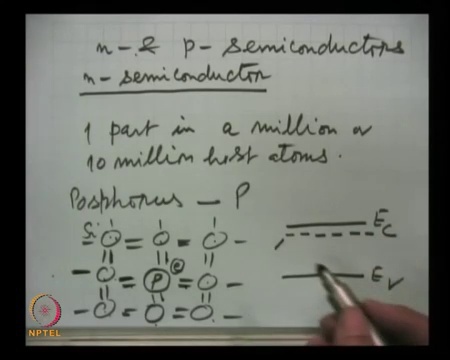 n- & p- semiconductors
n- semiconductor
1 part in a million or
10 million host atoms.
Posphorus - P
Si
P e
E_C
E_V
NPTEL